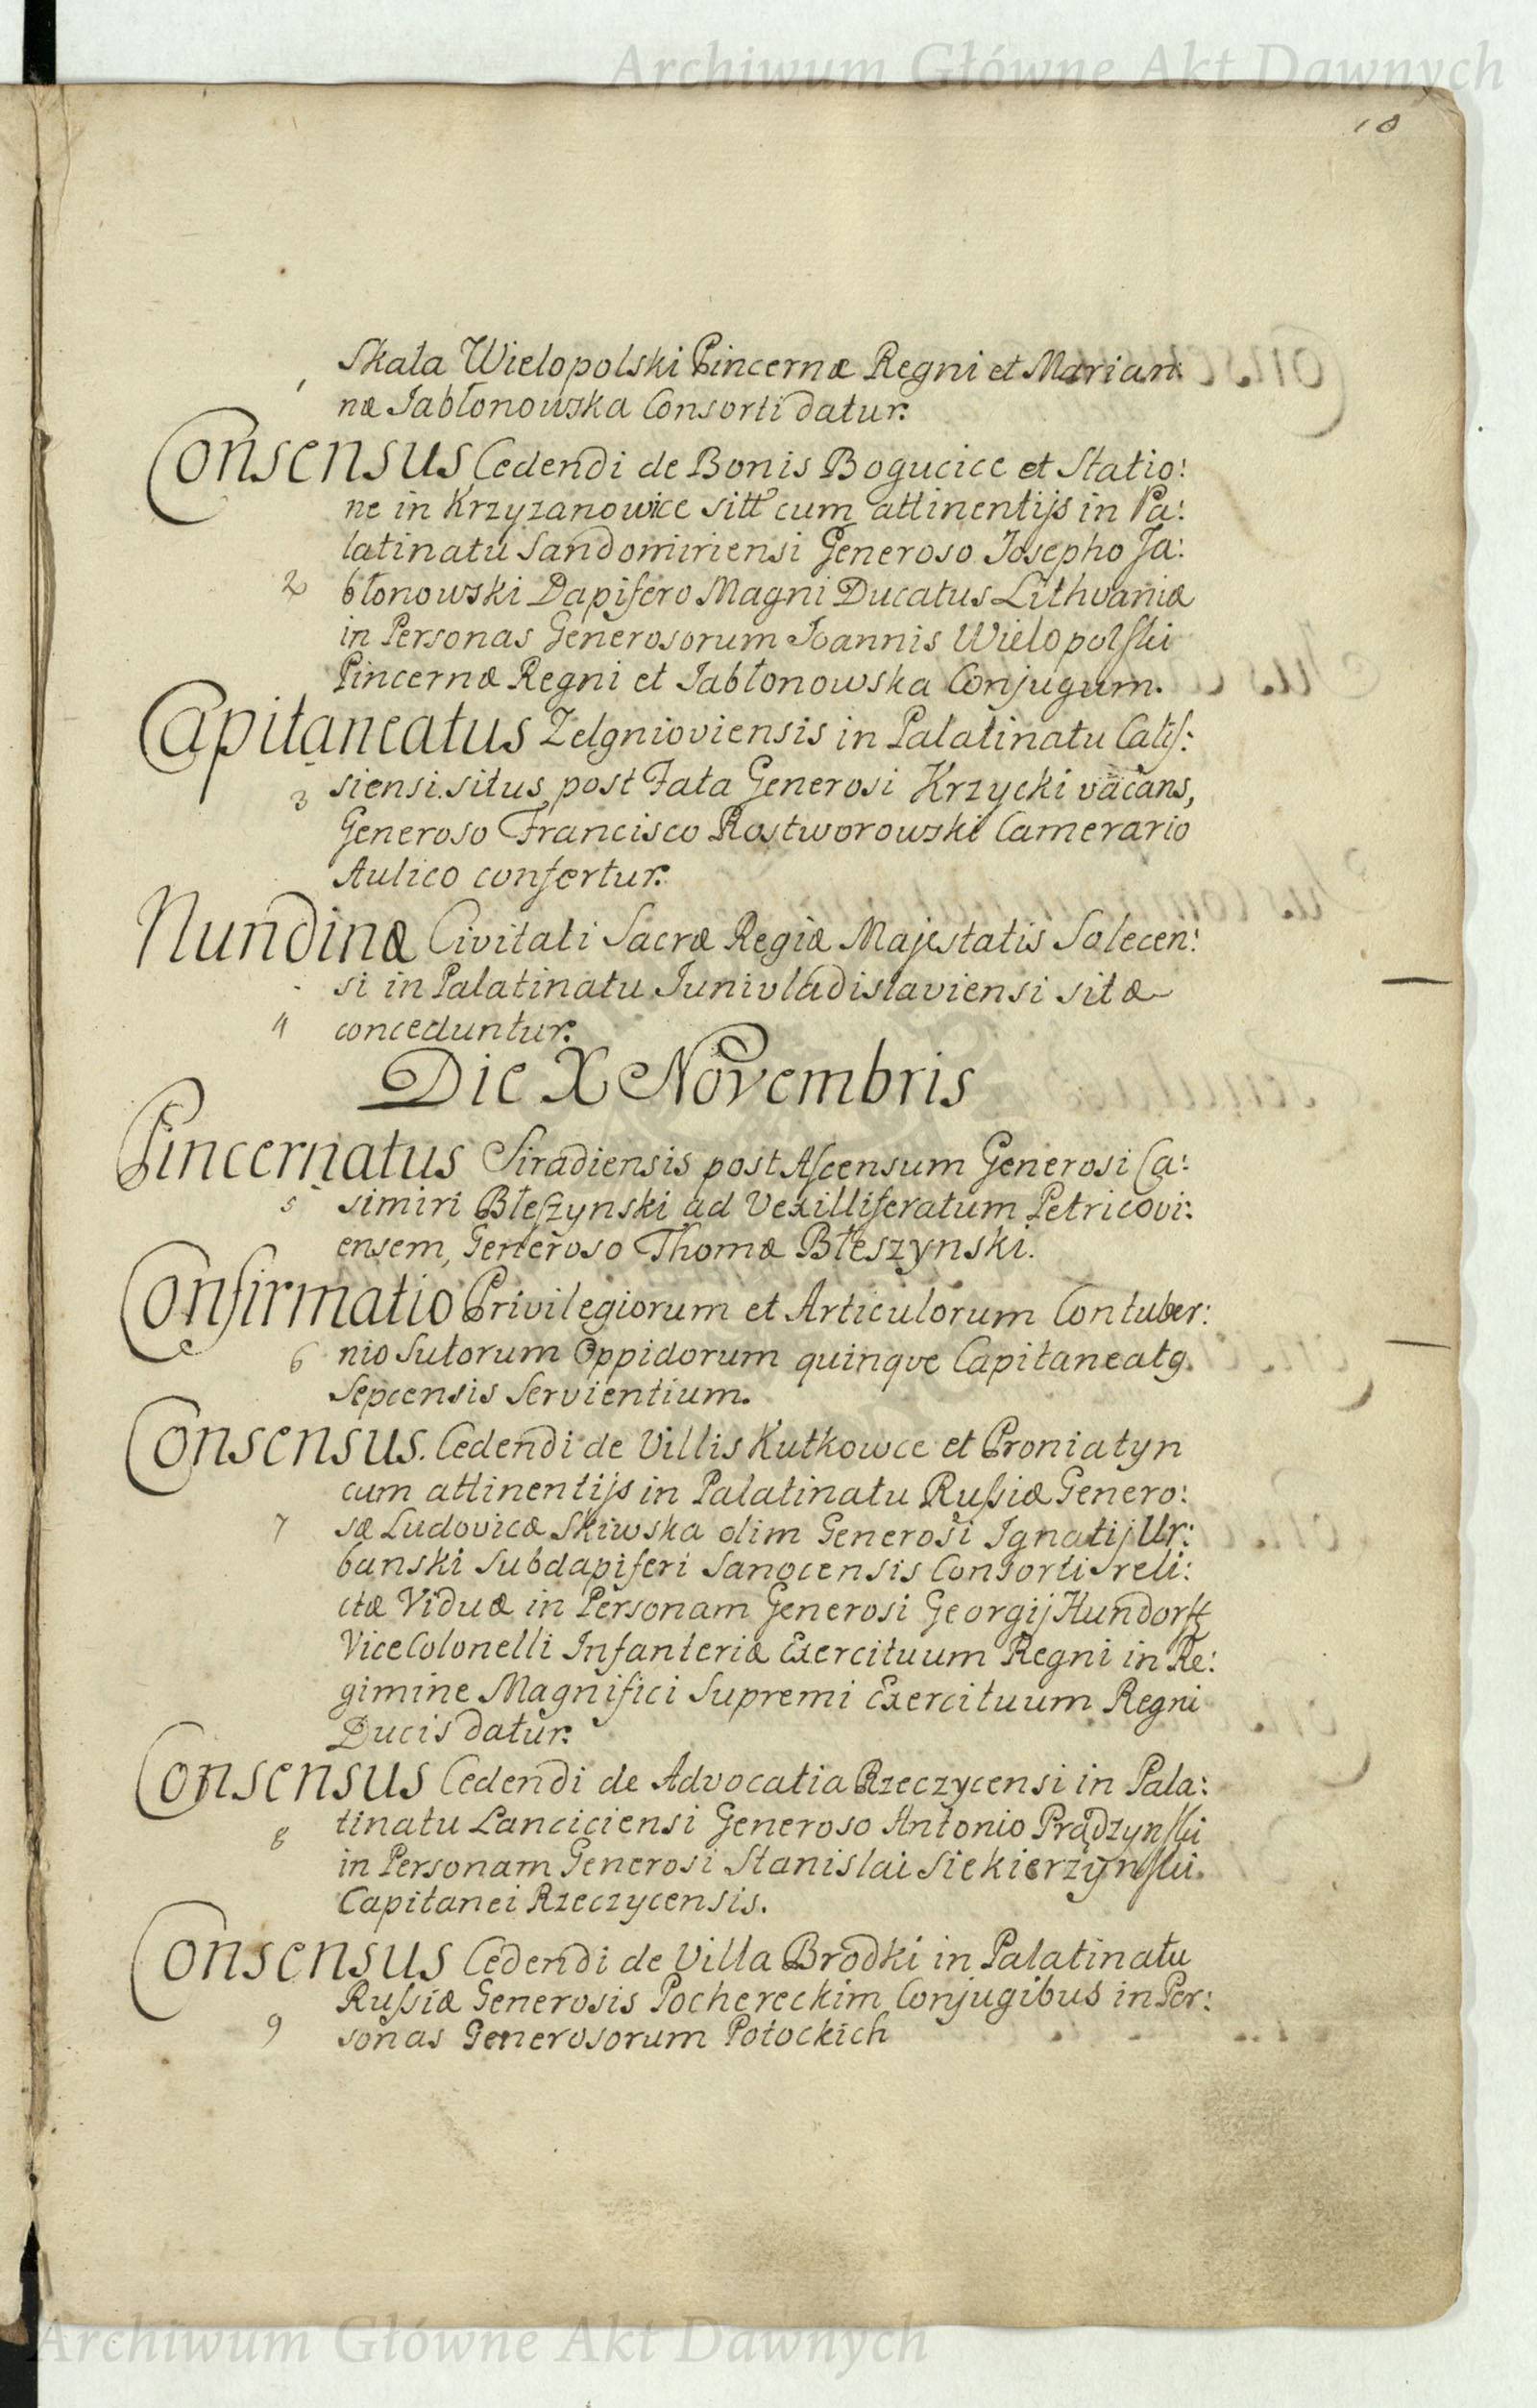 Archiwum Główne Akt Dawnych
18
Skała Wielopolski Pincernæ Regni et Marian:
1 næ Jabłonowska Consorti datur:
Consensus Cedendi de Bonis Bogucice et Statio:
ne in Krzyzanowice sitt cum attinentijs in Pa:
latinatu Sandomiriensi Generoso Josepho Ja:
2 błonowski Dapifero Magni Ducatus Lithvaniæ
in Personas Generosorum Joannis Wielopolski
Pincernæ Regni et Jabłonowska Conjugum.
Capitaneatus Zelgnioviensis in Palatinatu Calis:
3 siensi situs post Fata Generosi Krzycki vacans,
Generoso Francisco Rostworowski Camerario
Aulico confertur:
Nundinæ Civitati Sacræ Regiæ Majestatis Solecen:
si in Palatinatu Junivladislaviensi sitæ
4 conceduntur:
Die X Novembris
Pincernatus Siradiensis post Ascensum Generosi Ca:
5 simiri Błeszynski ad Vexilliferatum Petricovi:
ensem, Generoso Thomæ Błeszynski.
Confirmatio Privilegiorum et Articulorum Contuber:
6 nio Sutorum Oppidorum quinqve Capitaneatg
Sepcensis Servientium.
Consensus. Cedendi de Villis Kutkowce et Proniatyn
cum attinentijs in Palatinatu Russiæ Genero:
7 sæ Ludovicæ Skiwska olim Generosi Ignatij Ur:
banski Subdapiferi Sanocensis Consorti reli:
ctæ Viduæ in Personam Generosi Georgij Hundorff
ViceColonelli Infanteriæ Exercituum Regni in Re:
gimine Magnifici Supremi Exercituum Regni
Ducis datur:
Consensus Cedendi de Advocatia Rzeczycensi in Pala:
8 tinatu Lanciciensi Generoso Antonio Prądzynski
in Personam Generosi Stanislai Siekierzynski
Capitanei Rzeczycensis.
Consensus Cedendi de Villa Brodki in Palatinatu
Russiæ Generosis Pochereckim Conjugibus in Per:
9 sonas Generosorum Potockich
Archiwum Główne Akt Dawnych